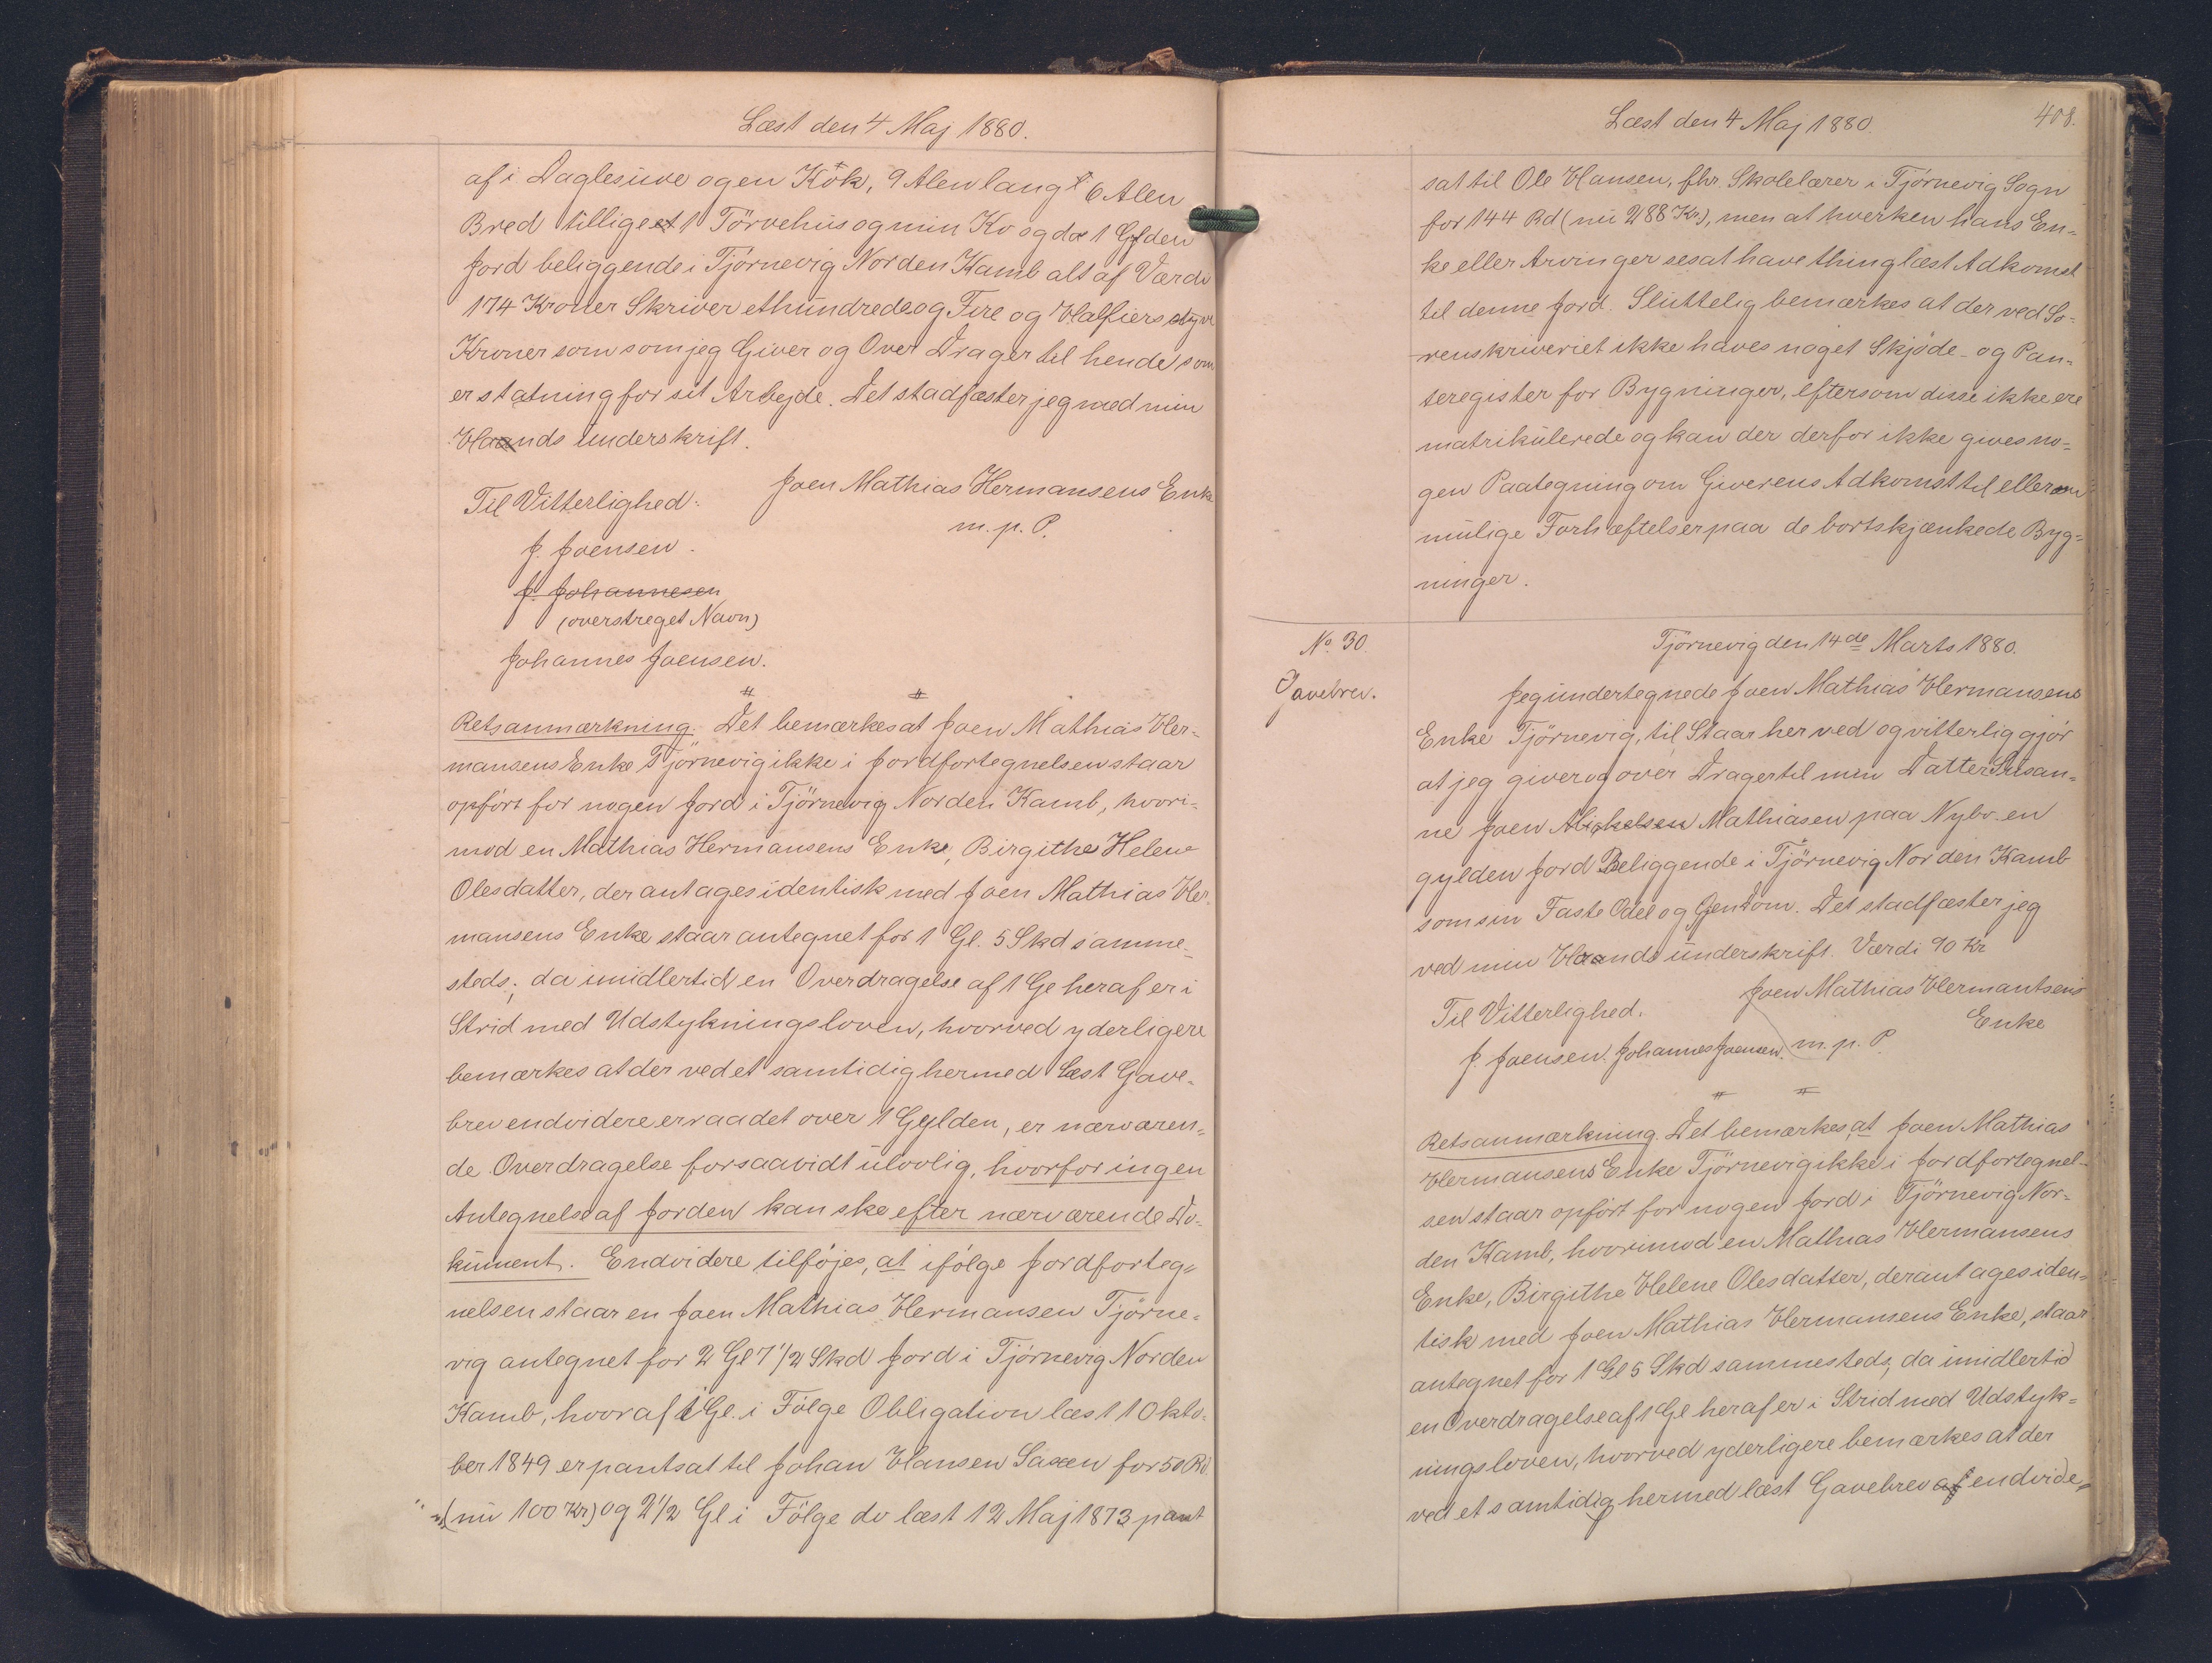 Læst den 4 Maj 1880.
af i Daglesuve og en Kök, 9 Alen lang & 6 Alen
Bred tillige et 1 Törvehus og min Ko og da 1 Gylden
Jord beliggende i Tjörnevig Norden Kamb alt af Værdi
174 Kroner Skriver ethundrede og Fire og Halfiers styve
Kroner som som jeg Giver og Over Drager til hende som
erstatning for sit Arbejde. Det stadfæster jeg med min
Haands underskrift.
Joen Mathias Hermansens Enke
m. p. P.
Til Vitterlighed:
J. Joensen.
J. Johannesen
(overstreget Navn)
Johannes Joensen.
Retsanmærkning. Det bemærkes at Joen Mathias Her-
mansens Enke Tjörnevig ikke i Jordfortegnelsen staar
opfört for nogen Jord i Tjörnevig Norden Kamb, hvori-
mod en Mathias Hermansens Enke, Birgithe Helene
Olesdatter, der antages identisk med Joen Mathias Her-
mansens Enke staar antegnet for 1 Gl. 5 Skd samme-
steds; da imidlertid en Overdragelse af 1 Gl heraf er i
Strid med Udstykningsloven, hvorved yderligere
bemærkes at der ved et samtidig hermed læst Gave-
brev endvidere er raadet over 1 Gylden, er nærværen-
de Overdragelse forsaavidt ulovlig, hvorfor ingen
Antegnelse af Jorden kan ske efter nærværende Do-
kument. Endvidere tilföjes, at ifölge Jordforteg-
nelsen staar en Joen Mathias Hermansen Tjörne-
vig antegnet for 2 Gl 7 1/2 Skd Jord i Tjörnevig Norden
Kamb, hvoraf 1 Gl. i Fölge Obligation læst 1 Okto-
ber 1849 er pantsat til Johan Hansen Saxen for 50 Rd.
(nu 100 Kr) og 2 1/2 Gl i Fölge do læst 12 Maj 1873 pant
Læst den 4 Maj 1880.
408.
sat til Ole Hansen, fhr. Skolelærer i Tjörnevig Sogn
for 144 Rd (nu 288 Kr), men at hverken hans En-
ke eller Arvinger ses at have thinglæst Adkomst
til denne Jord. Sluttelig bemærkes at der ved So-
renskriveriet ikke haves noget Skjöde- og Pan-
teregister for Bygninger, eftersom disse ikke ere
matrikulerede og kan der derfor ikke gives no-
gen Paategning om Giverens Adkomst til eller om
mulige Forhæftelser paa de bortskjænkede Byg-
ninger.
No. 30.
Gavebrev.
Tjörnevig den 14de Marts 1880.
Jeg undertegnede Joen Mathias Hermansens
Enke Tjörnevig, til Staar her ved og vitterlig gjör
at jeg giver og over Drager til min Datter Susan-
ne Joen Mikkelsen Mathiasen paa Nybo en
gylden Jord Beliggende i Tjörnevig Norden Kamb
som sin Faste Odel og GenDom. Det stadfæster jeg
ved min Haands underskrift. Værdi 90 Kr
Joen Mathias Hermantsens
Enke
m. p. P.
Til Vitterlighed.
J. Joensen. Johannes Joensen.
Retsanmærkning. Det bemærkes, at Joen Mathias
Hermansens Enke Tjörnevig ikke i Jordfortegnel-
sen staar opfört for nogen Jord i Tjörnevig Nor-
den Kamb, hvorimod en Mathias Hermansens
Enke, Birgithe Helene Olesdatter, der antages iden-
tisk med Joen Mathias Hermansens Enke, staar
antegnet for 1 Gl 5 Skd sammesteds, da imidlertid
en Overdragelse af 1 Gl heraf er i Strid med Udstyk-
ningsloven, hvorved yderligere bemærkes at der
ved et samtidig hermed læst Gavebrev af endvide-